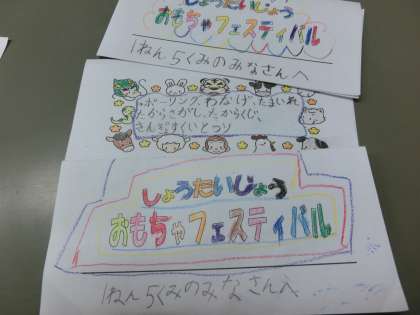 しょうたいじょう
おもちゃフェスティバル
1ねん5くみのみなさんへ
ボーリング、わなげ、たまいれ
たからさがし、たからくじ、
さんぎょすくい とつり
しょうたいじょう
おもちゃフェスティバル
1ねん5くみのみなさんへ